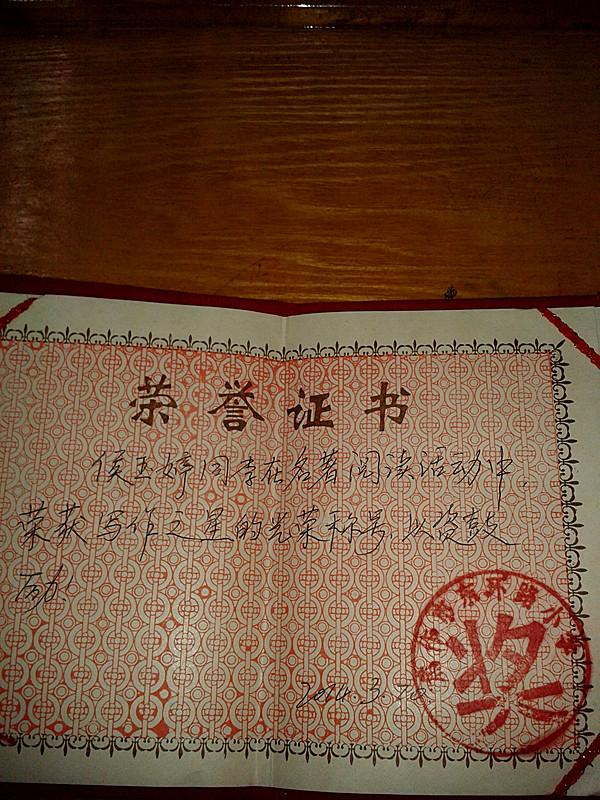 荣誉证书
侯玉婷同学在名著阅读活动中,
荣获写作之星的光荣称号,以资鼓
励!
2014.3
东环路小学
奖